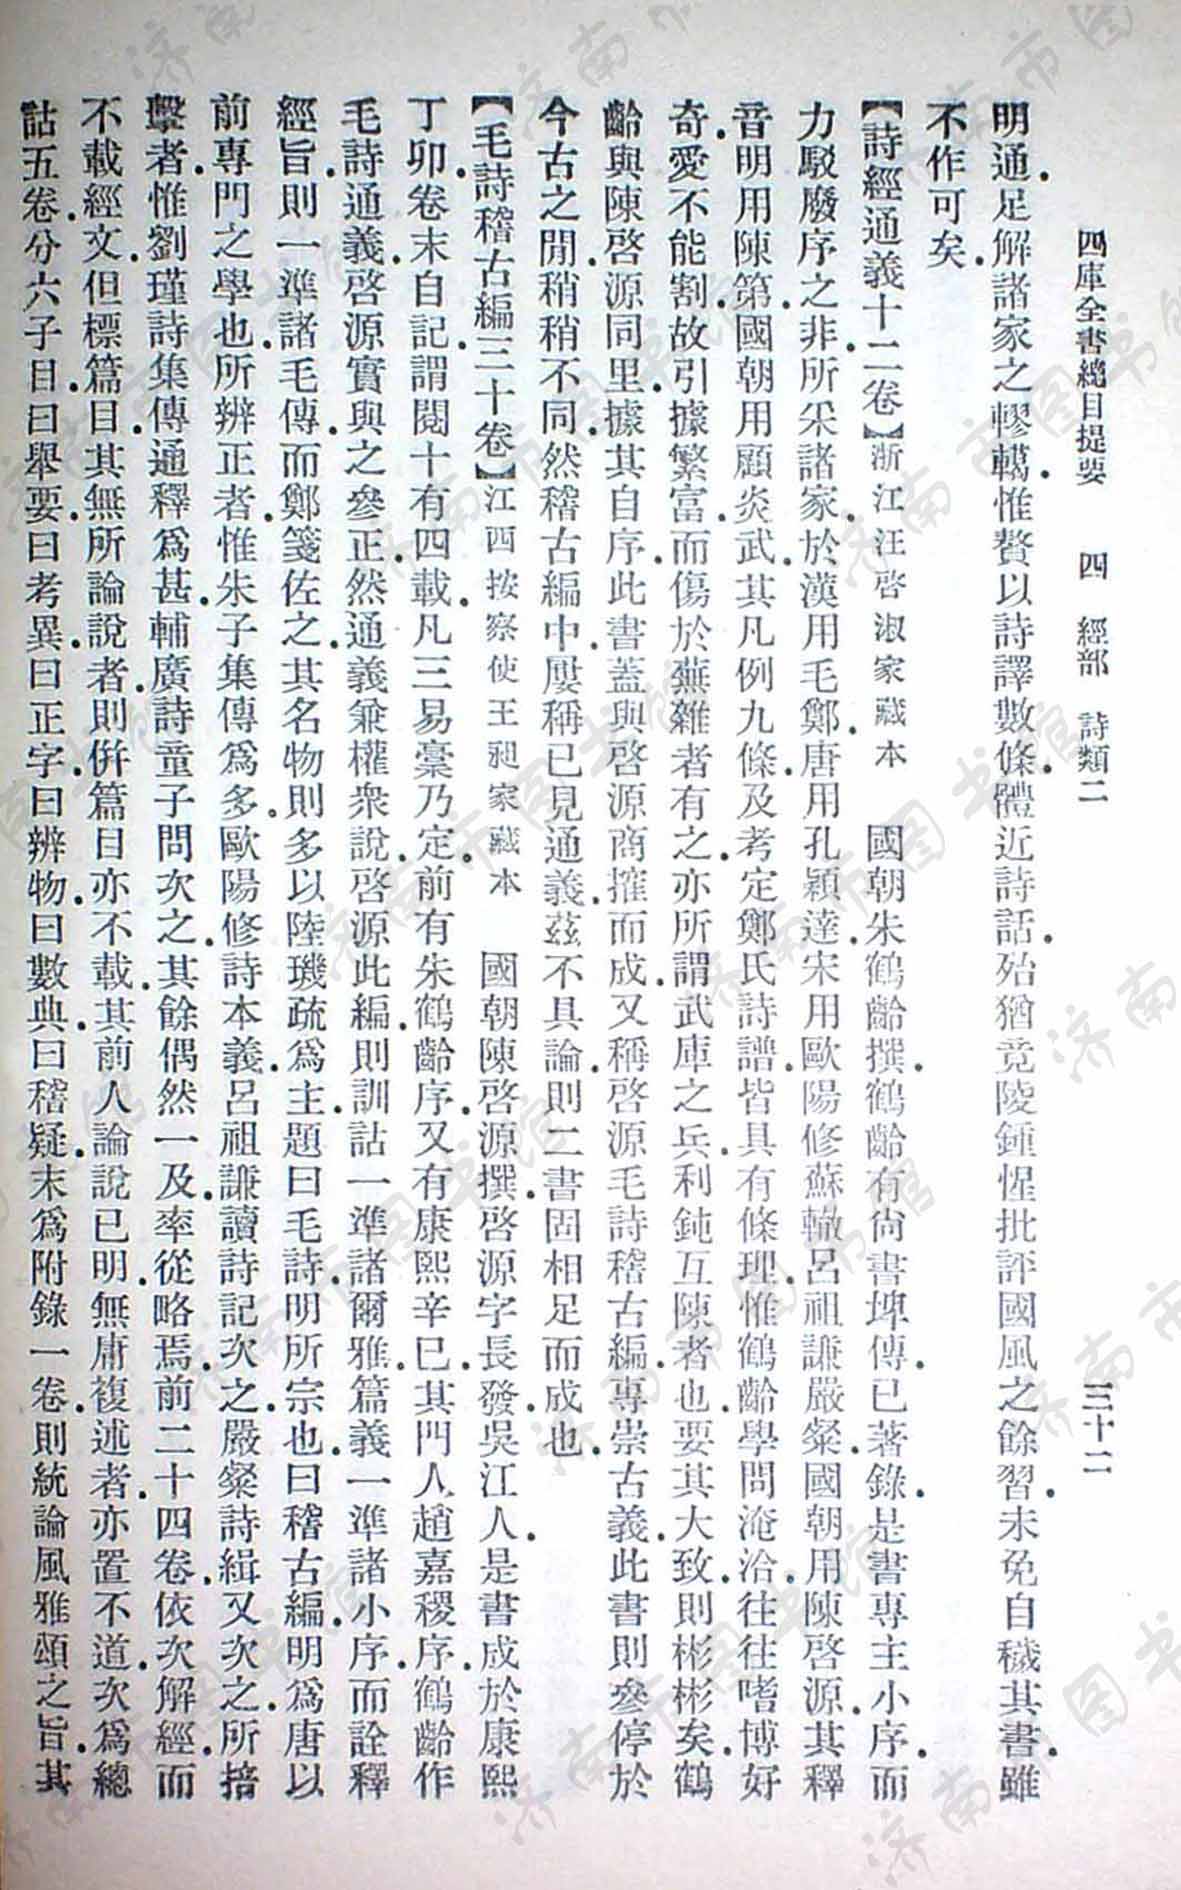 四庫全書總目提要　四　經部　詩類二　三十二
明通．足解諸家之轇轕．惟贅以詩譯數條．體近詩話．殆猶竟陵鍾惺批評國風之餘習．未免自穢其書．雖
不作可矣．
【詩經通義十二卷】浙江汪啓淑家藏本　國朝朱鶴齡撰．鶴齡有尙書埤傳．已著錄．是書專主小序．而
力駁廢序之非．所采諸家．於漢用毛鄭．唐用孔穎達．宋用歐陽修蘇轍呂祖謙嚴粲．國朝用陳啓源．其釋
音明用陳第．國朝用顧炎武．其凡例九條．及考定鄭氏詩譜．皆具有條理．惟鶴齡學問淹洽．往往嗜博好
奇．愛不能割．故引據繁富．而傷於蕪雜者有之．亦所謂武庫之兵．利鈍互陳者也．要其大致．則彬彬矣．鶴
齡與陳啓源同里．據其自序．此書蓋與啓源商搉而成．又稱啓源毛詩稽古編．專崇古義．此書則參停於
今古之閒．稍稍不同．然稽古編中．屢稱已見通義．茲不具論．則二書固相足而成也．
【毛詩稽古編三十卷】江西按察使王昶家藏本　國朝陳啓源撰．啓源字長發．吳江人．是書成於康熙
丁卯．卷末自記．謂閱十有四載．凡三易稾乃定．前有朱鶴齡序．又有康熙辛巳．其門人趙嘉稷序．鶴齡作
毛詩通義．啓源實與之參正．然通義兼權衆說．啓源此編．則訓詁一準諸爾雅．篇義一準諸小序．而詮釋
經旨．則一準諸毛傳．而鄭箋佐之．其名物則多以陸璣疏爲主．題曰毛詩．明所宗也．曰稽古編．明爲唐以
前專門之學也．所辨正者．惟朱子集傳爲多．歐陽修詩本義．呂祖謙讀詩記次之．嚴粲詩緝又次之．所掊
擊者．惟劉瑾詩集傳通釋爲甚．輔廣詩童子問次之．其餘偶然一及．率從略焉．前二十四卷．依次解經．而
不載經文．但標篇目．其無所論說者．則倂篇目亦不載．其前人論說已明．無庸複述者．亦置不道．次爲總
詁五卷．分六子目．曰舉要．曰考異．曰正字．曰辨物．曰數典．曰稽疑．末爲附錄一卷．則統論風雅頌之旨．其